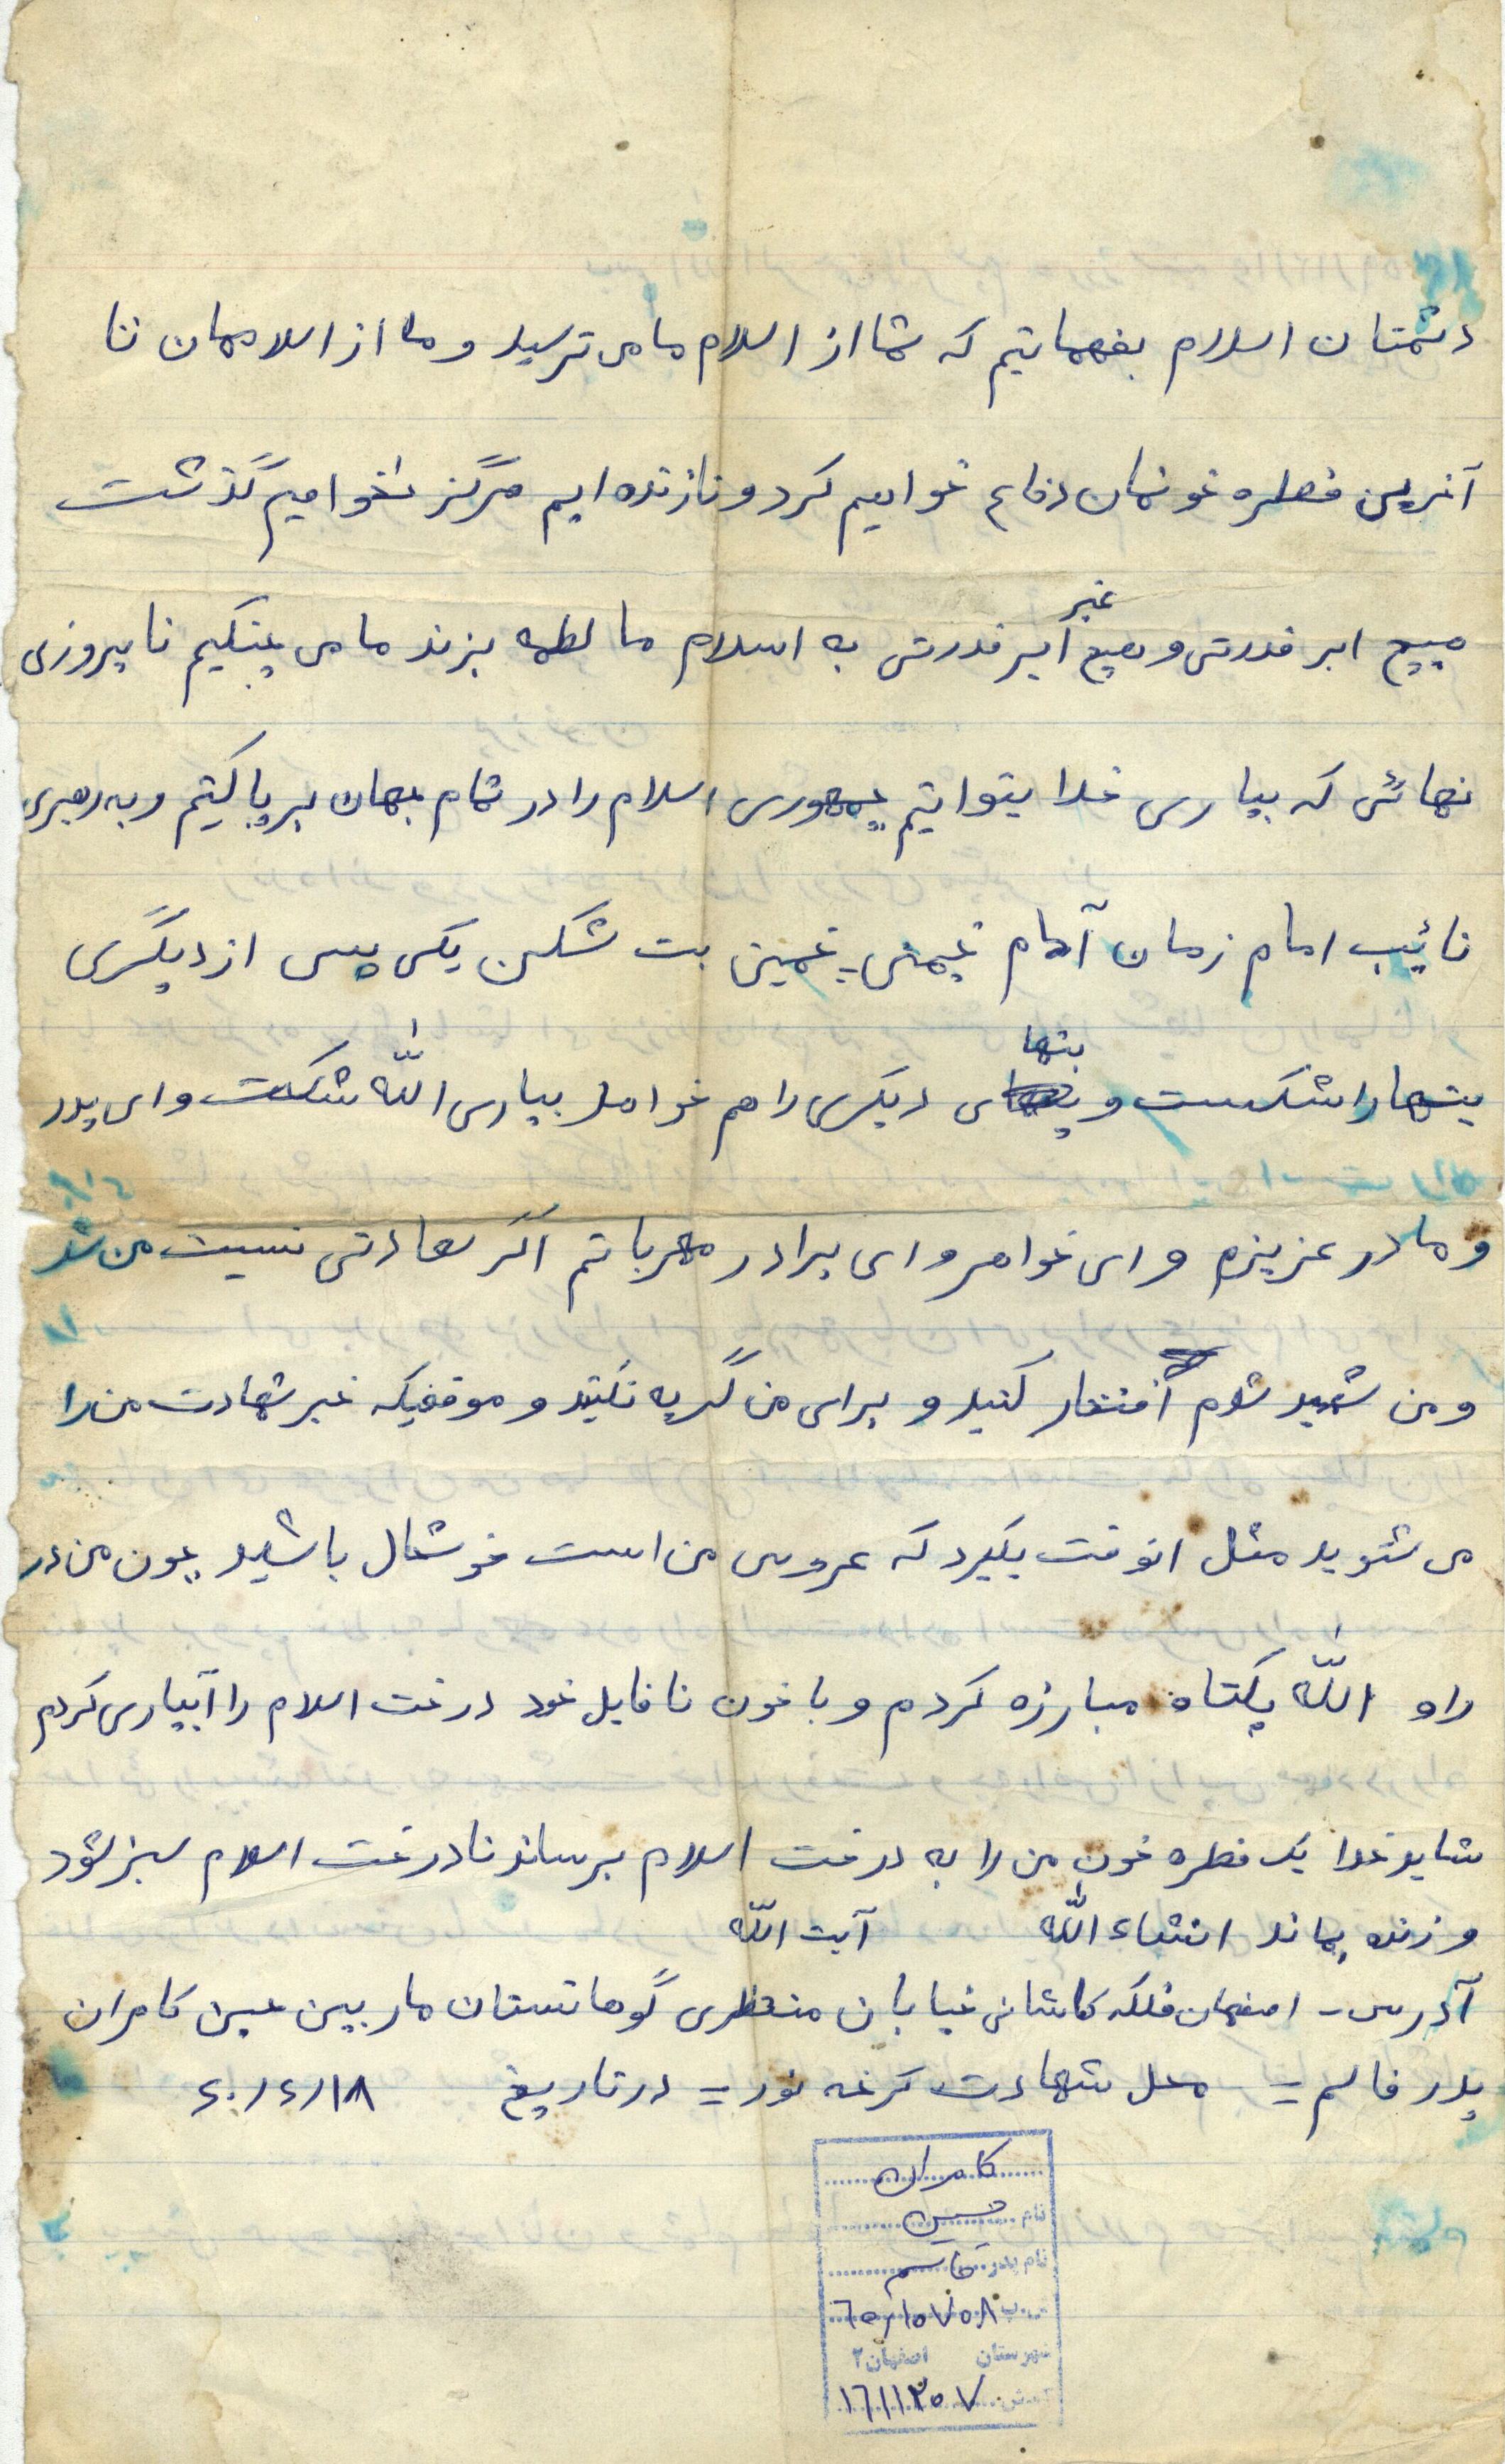 دشمنان اسلام بفهمانیم که شما از اسلام ما می ترسید و ما از اسلاممان تا
آخرین قطره خونمان دفاع خواهیم کرد و تا زنده ایم هرگز نخواهیم گذشت
هیچ ابر قدرتی و هیچ غیر ابر قدرتی به اسلام ما لطمه بزند ما می جنگیم تا پیروزی
نهائی که بیاری خدا بتوانیم جمهوری اسلام را در تمام جهان بر پا کنیم و به رهبری
نائیب امام زمان امام خمینی خمینی بت شکن یکی پس از دیگری
بتها را شکست و بتهای دیگری را هم خواهد بیاری اللّه شکست و ای پدر
و مادر عزیزم و ای خواهر و ای برادر مهربانم اگر سعادتی نسیب من شد
و من شهید شدم افتخار کنید و برای من گریه نکنید و موقعیکه خبر شهادت من را
می شنوید مثل انوقت بگیرد که عروسی من است خوشحال باشید چون من در
راه اللّه یکتاه مبارزه کردم و با خون ناقابل خود درخت اسلام را آبیاری کردم
شاید خدا یک قطره خون من را به درخت اسلام برساند تا درخت اسلام سبز شود
و زنده بماند انشاء اللّه آیت اللّه
آدرس - اصفهان فلکه کاشانی خیابان منتظری گوهانستان ماربین حسین کامران
پدر قاسم = محل شهادت کرخه نور = در تاریخ ۶۰/۴/۱۸
کامران
نام حسین
نام پدر قاسم
۶۵/۱۰۷۰۸
شهرستان اصفهان۲
۱۶۱۱۲۰۷